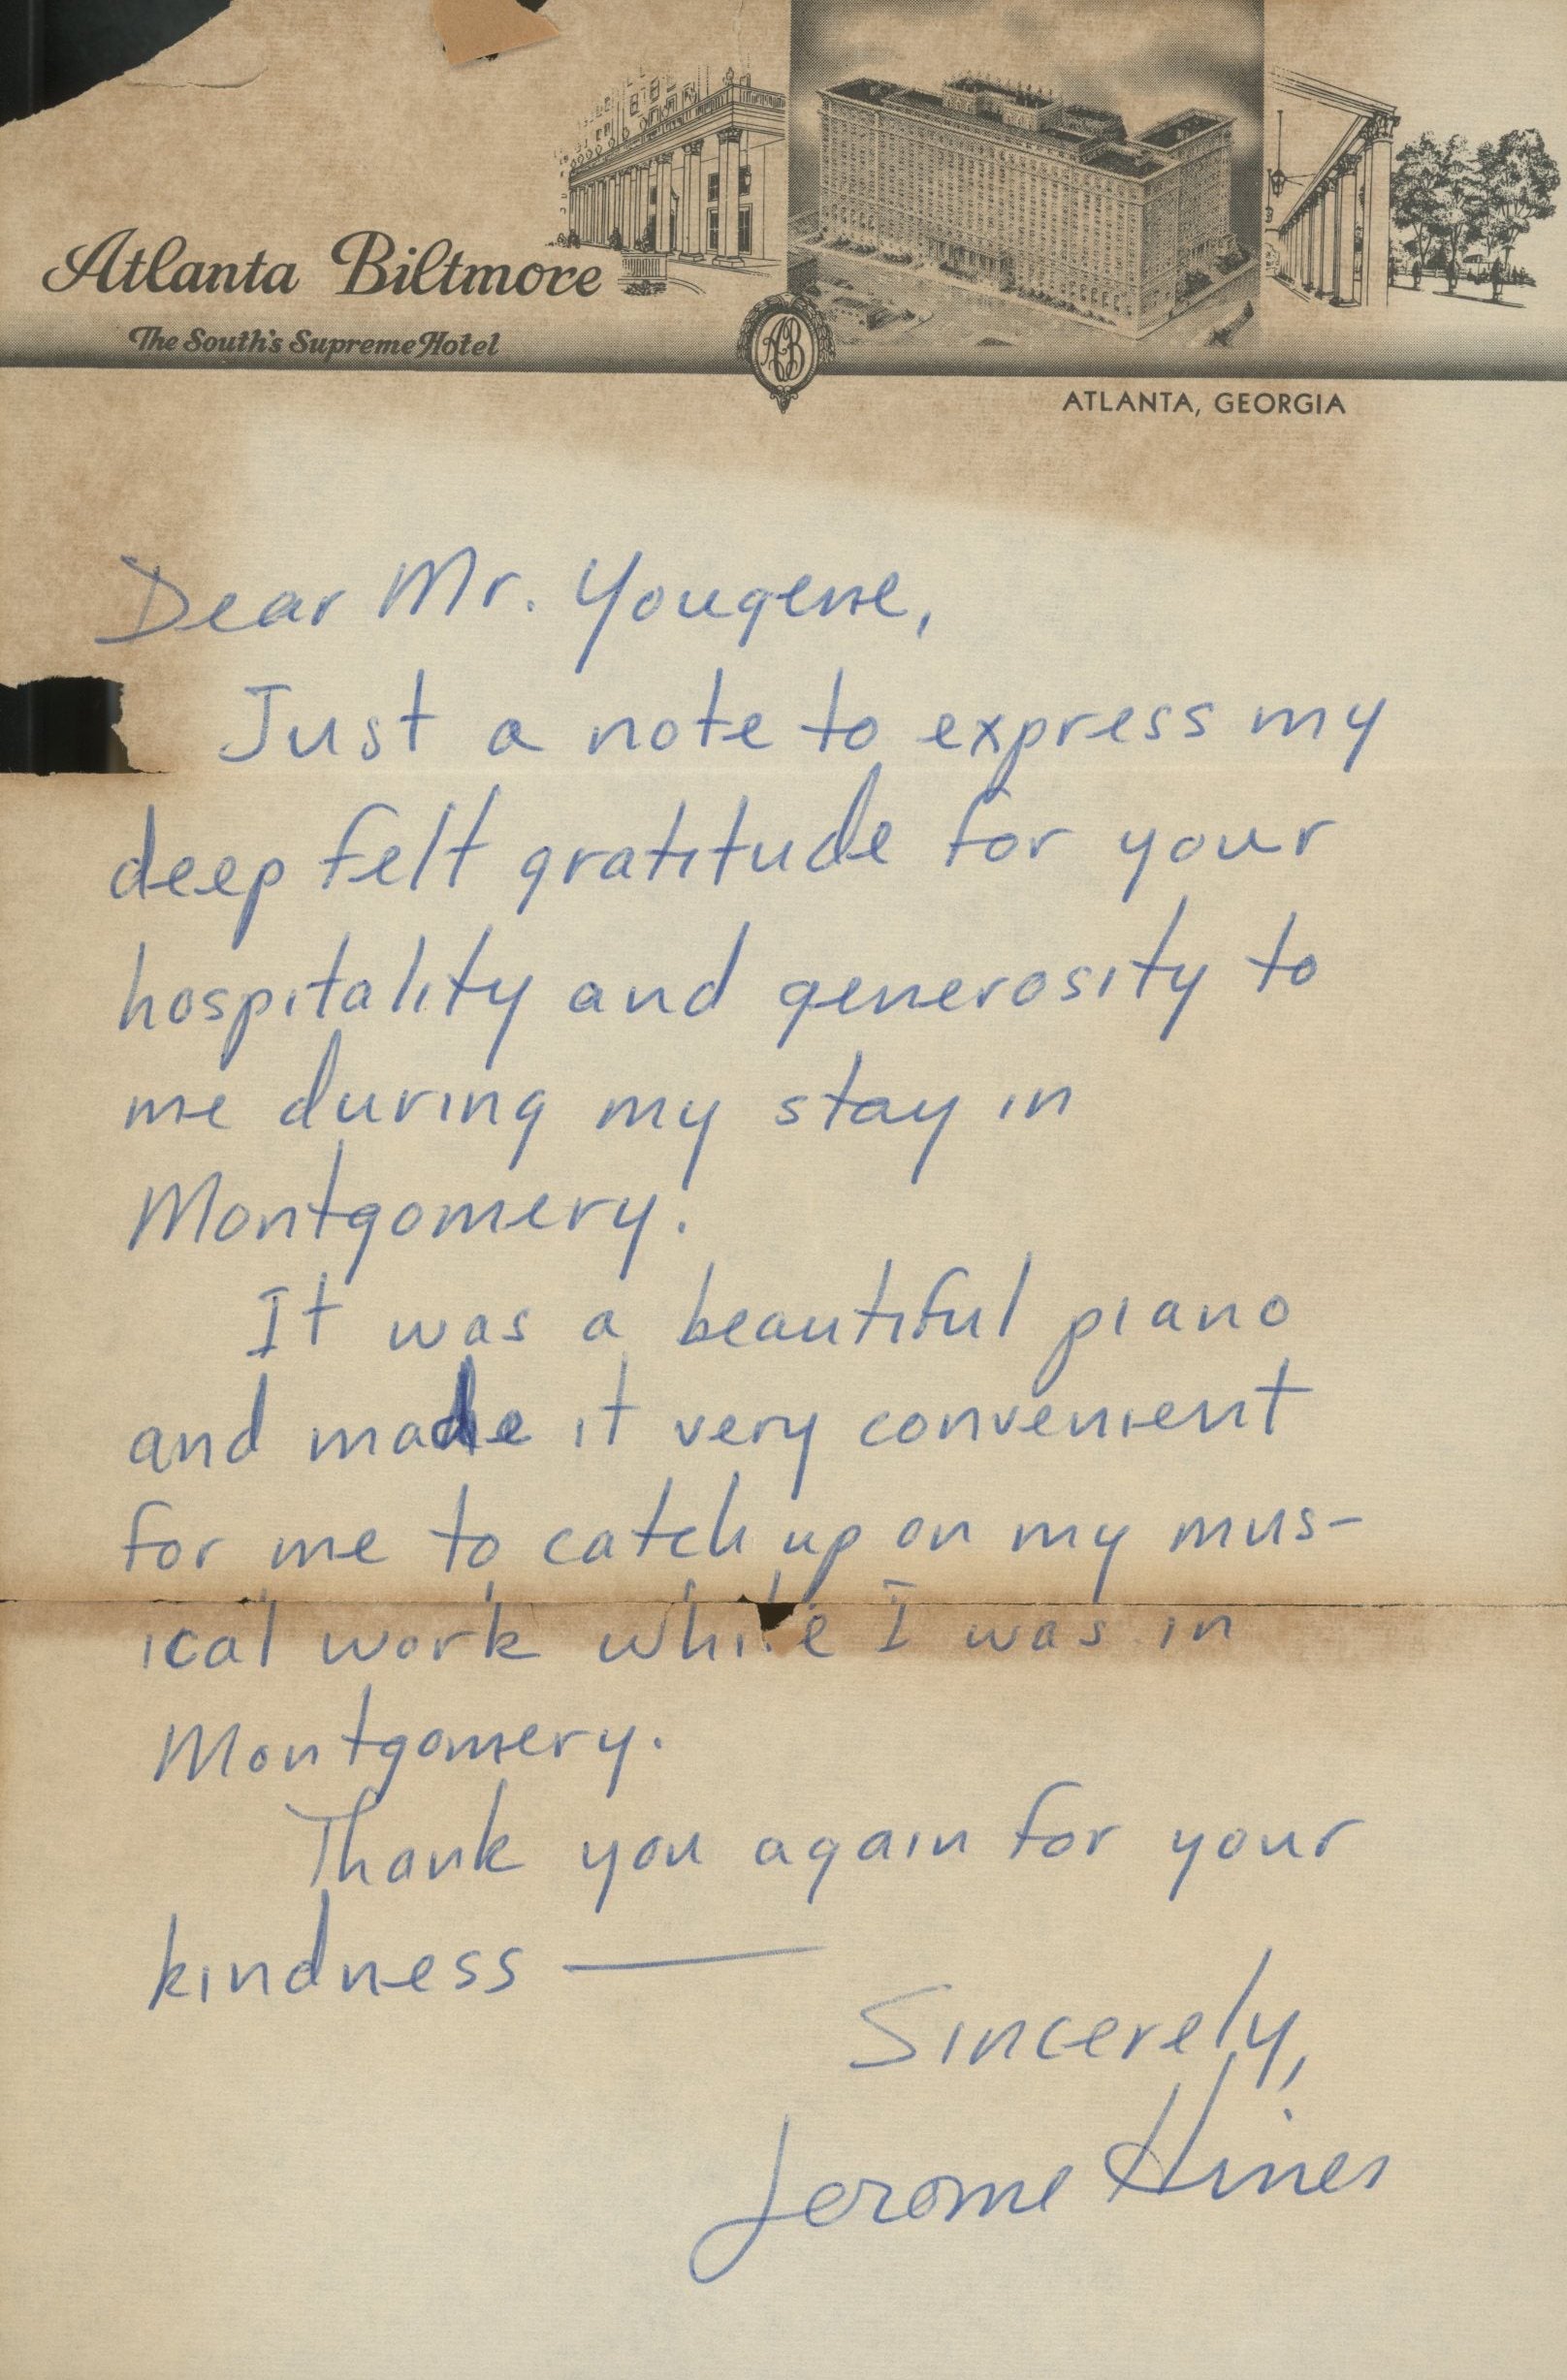 Atlanta Biltmore
The South's Supreme Hotel
AB
ATLANTA, GEORGIA
Dear Mr. Yougene,
Just a note to express my
deep felt gratitude for your
hospitality and generosity to
me during my stay in
Montgomery.
It was a beautiful piano
and made it very convenient
for me to catch up on my mus-
ical work while I was in
Montgomery.
Thank you again for your
kindness —
Sincerely,
Jerome Hines